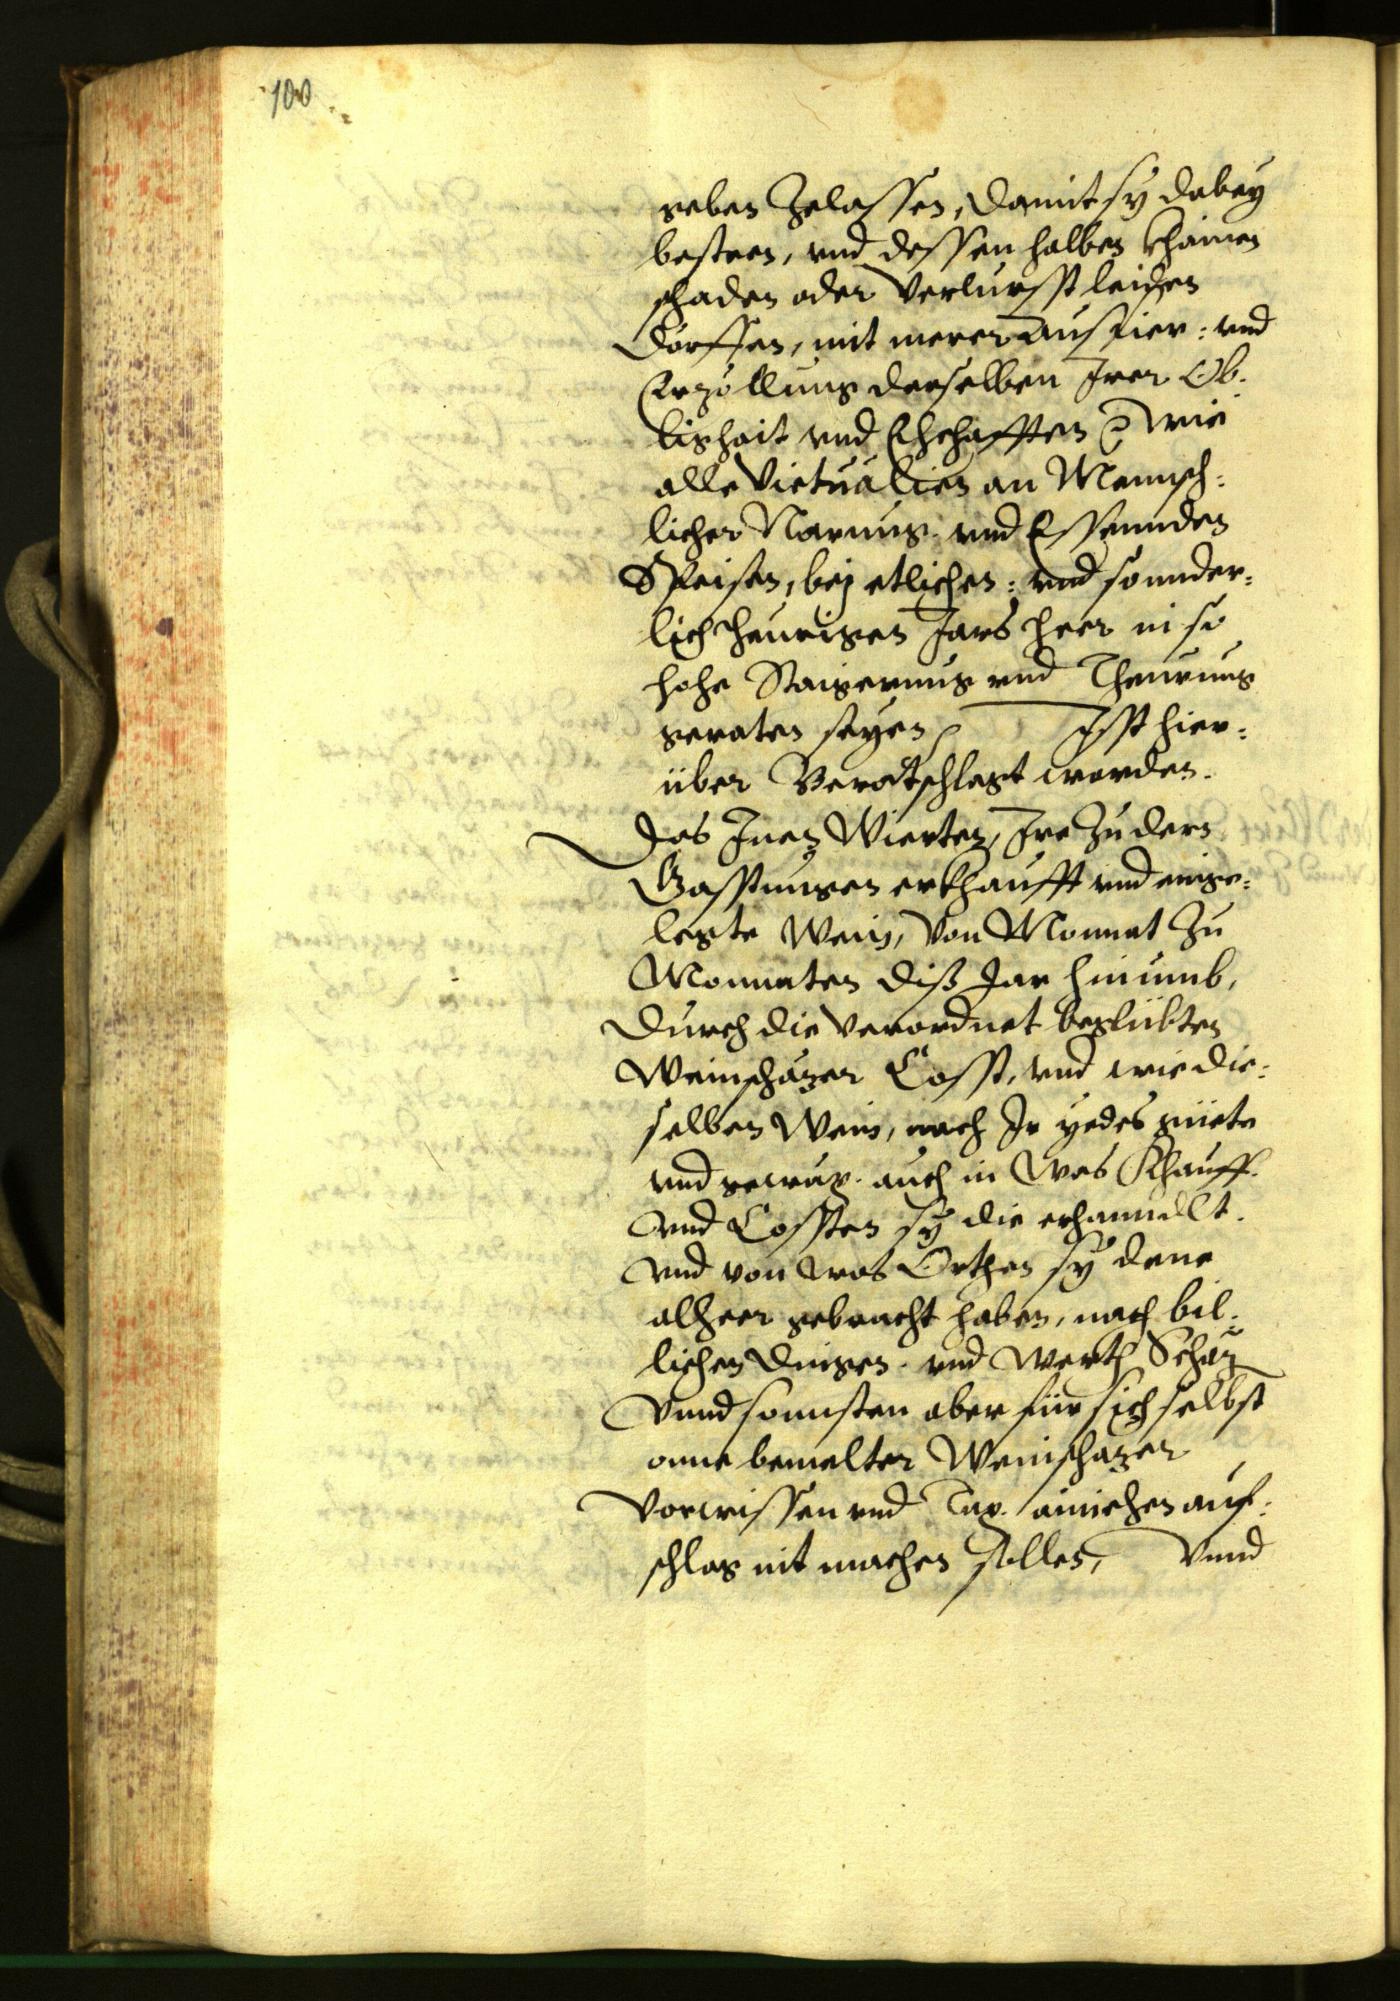 100
geben zelassen, damit sy dabey
besteen, vnd dessen halben khainen
schaden oder Verlursst leiden
dörffen, mit merer Ausfier: vnd
Erzöllung derselben Irer Ob-
ligkait vnd Ehehafften wie
alle Victualien an Mennsch:
licher Narung. vnd Essennden
Speisen, bej etlichen: vnd sonnder:
lich heurigen Jars heer in so
hohe Staigerung vnd Theurung
geraten seyen Ist hier:
über Beratschlagt worden.
Das Inen Wierten, Ire zu dern
Gasstungen erkhaufft vnd einge:
legte Wein, von Monnat zu
Monnaten diß Jar hinumb,
durch die verordnet beglübten
Weinschäzer Cosst, vnd wie die:
selben Wein, nach Ir yedes güete
vnd gewäx. auch in was Khauff.
vnd Cossten sy die erhanndlt.
vnd von was Orthen sy dene
alheer gebracht haben, nach bil:
lichen dingen. vnd werth Schäz
Vnnd sonnsten aber für sich selbst
onne bemelter Weinschäzer
Vorwissen vnd Tax. ainichen auf:
schlag nit machen sollen, Vnnd